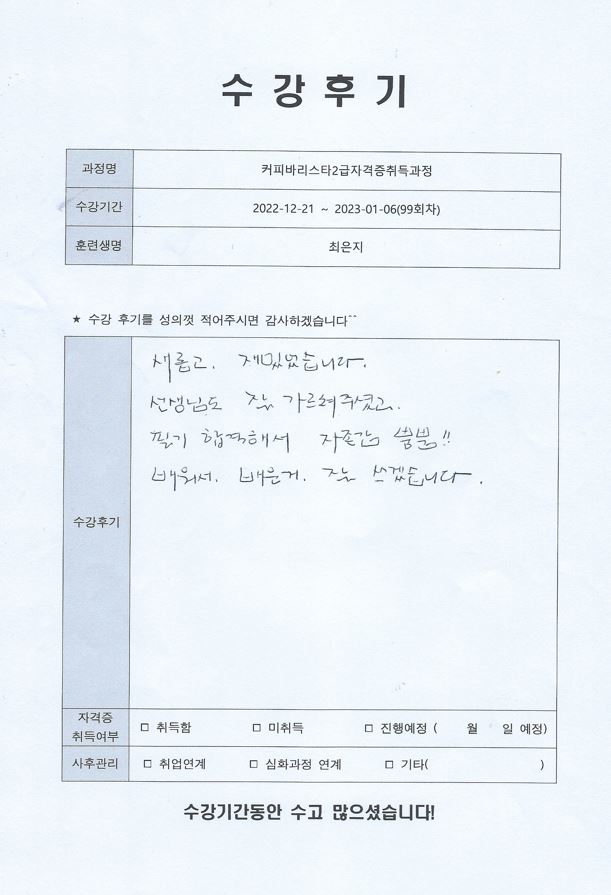 수강후기
과정명 커피바리스타2급자격증취득과정
수강기간 2022-12-21 ~ 2023-01-06(99회차)
훈련생명 최은지
★ 수강 후기를 성의껏 적어주시면 감사하겠습니다^^
새롭고. 재밌었습니다.
선생님도 잘 가르쳐주셨고.
필기 합격해서 자존감 뿜뿜!!
배워서. 배운거. 잘 쓰겠습니다.
수강후기
자격증
취득여부 □ 취득함 □ 미취득 □ 진행예정 ( 월 일 예정)
사후관리 □ 취업연계 □ 심화과정 연계 □ 기타( )
수강기간동안 수고 많으셨습니다!